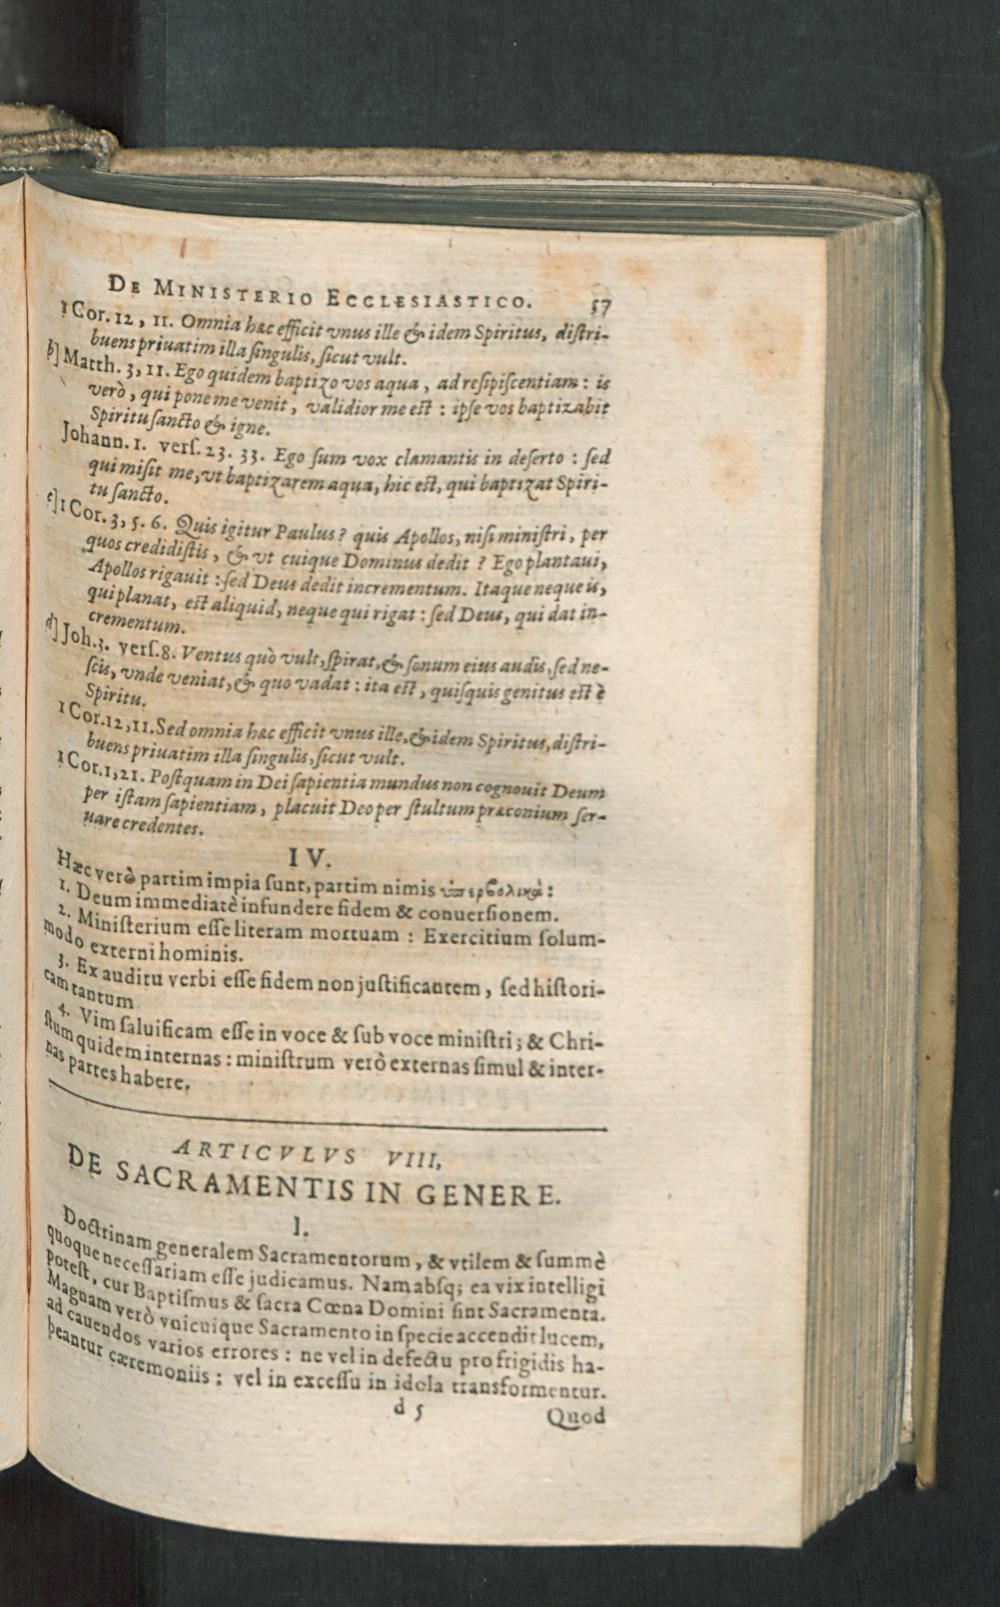 DE MINISTERIO ECCLESIASTICO. 57
1 Cor. 12, 11. Omnia hæc efficit vnus ille & idem Spiritus, distri-
buens priuatim illa singulis, sicut vult.
b] Matth. 3, 11. Ego quidem baptizo vos aqua, ad resipiscentiam: is
verò, qui pone me venit, validior me est: ipse vos baptizabit
Spiritu sancto & igne.
Johann. 1. vers. 23. 33. Ego sum vox clamantis in deserto: sed
qui misit me, vt baptizarem aqua, hic est, qui baptizat Spiri-
tu sancto.
c] 1 Cor. 3, 5. 6. Quis igitur Paulus? quis Apollos, nisi ministri, per
quos credidistis, & vt cuique Dominus dedit? Ego plantaui,
Apollos rigauit: sed Deus dedit incrementum. Itaque neque is,
qui planat, est aliquid, neque qui rigat: sed Deus, qui dat in-
crementum.
d] Joh. 3. vers. 8. Ventus quò vult, spirat, & sonum eius audis, sed ne-
scis, vnde veniat, & quo vadat: ita est, quisquis genitus est è
Spiritu.
1 Cor. 12, 11. Sed omnia hæc efficit vnus ille, & idem Spiritus, distri-
buens priuatim illa singulis, sicut vult.
1 Cor. 1, 21. Postquam in Dei sapientia mundus non cognouit Deum
per istam sapientiam, placuit Deo per stultum præconium ser-
uare credentes.
IV.
Hæc verò partim impia sunt, partim nimis ὑπερβολικὰ:
1. Deum immediatè infundere fidem & conuersionem.
2. Ministerium esse literam mortuam: Exercitium solum-
modo externi hominis.
3. Ex auditu verbi esse fidem non justificantem, sed histori-
cam tantum
4. Vim saluificam esse in voce & sub voce ministri; & Chri-
stum quidem internas: ministrum verò externas simul & inter-
nas partes habere.
ARTICVLVS VIII,
DE SACRAMENTIS IN GENERE.
I.
Doctrinam generalem Sacramentorum, & vtilem & summè
quoque necessariam esse judicamus. Nam absq; ea vix intelligi
potest, cur Baptismus & sacra Cœna Domini sint Sacramenta.
Magnam verò vnicuique Sacramento in specie accendit lucem,
ad cauendos varios errores: ne vel in defectu pro frigidis ha-
beantur cæremoniis: vel in excessu in idola transformentur.
d 5 Quod